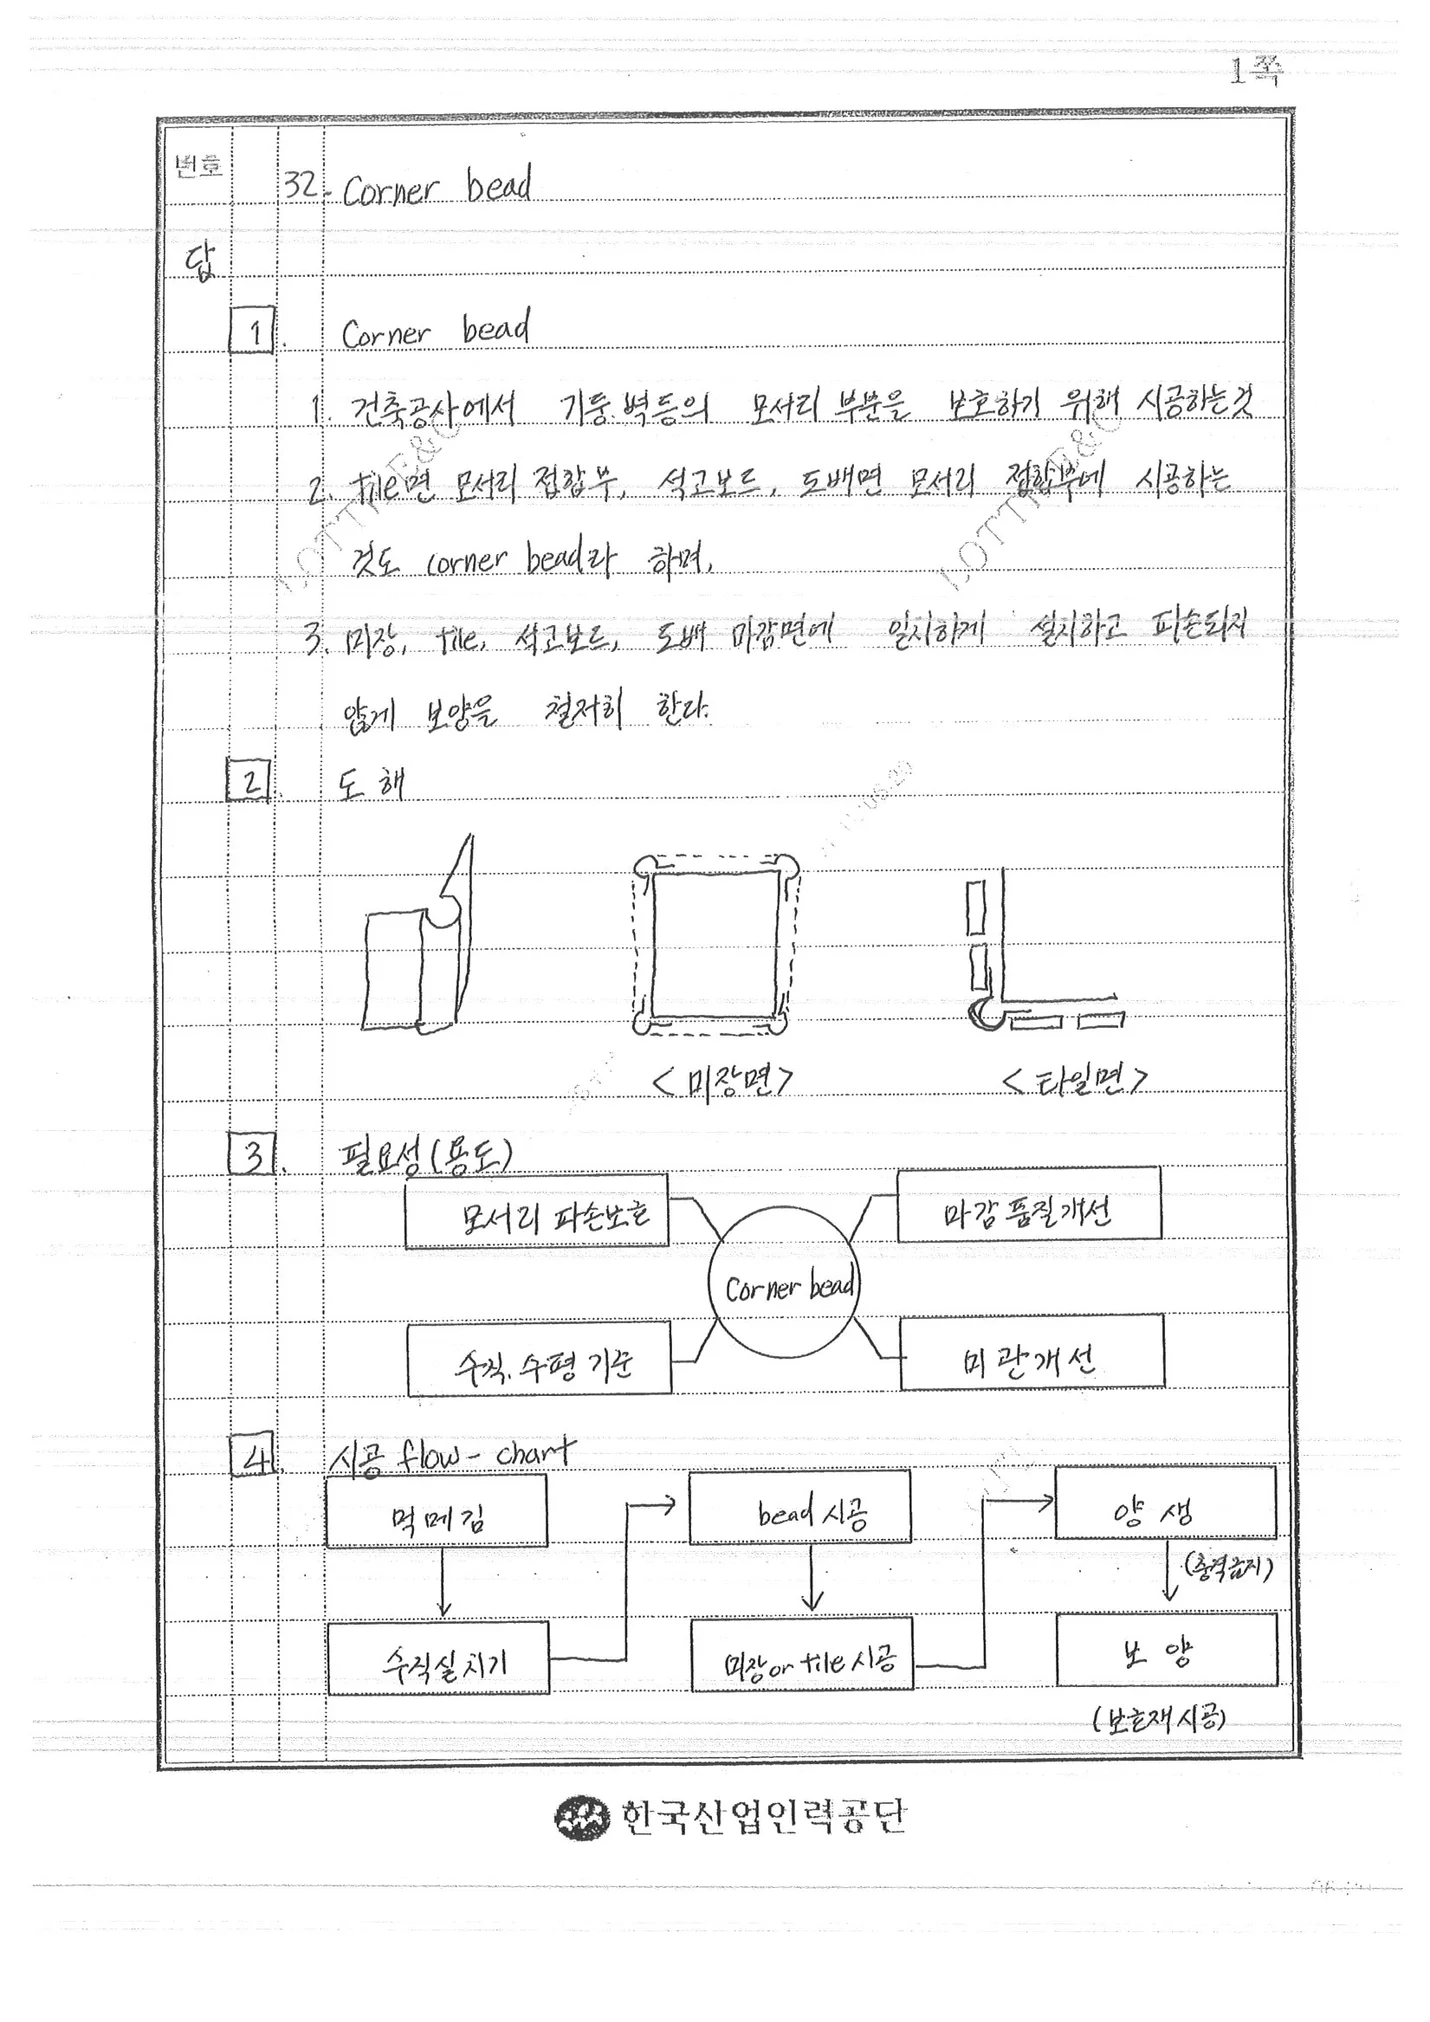 1쪽
번호
32. Corner bead
답
1. Corner bead
1. 건축공사에서 기둥.벽등의 모서리 부분을 보호하기 위해 시공하는것
2. tile면 모서리 접합부, 석고보드, 도배면 모서리 접합부에 시공하는
것도 corner bead라 하며,
3. 미장, tile, 석고보드, 도배 마감면에 일치하게 설치하고 파손되지
않게 보양을 철저히 한다.
2. 도해
<미장면> <타일면>
3. 필요성(용도)
모서리 파손보호 마감 품질개선
Corner bead
수직.수평 기준 미관개선
4. 시공 flow-chart
먹메김 bead 시공 양생
(충격금지)
수직실치기 미장or tile 시공 보양
(보호재 시공)
한국산업인력공단
LOTTE&C
LOTTE&C